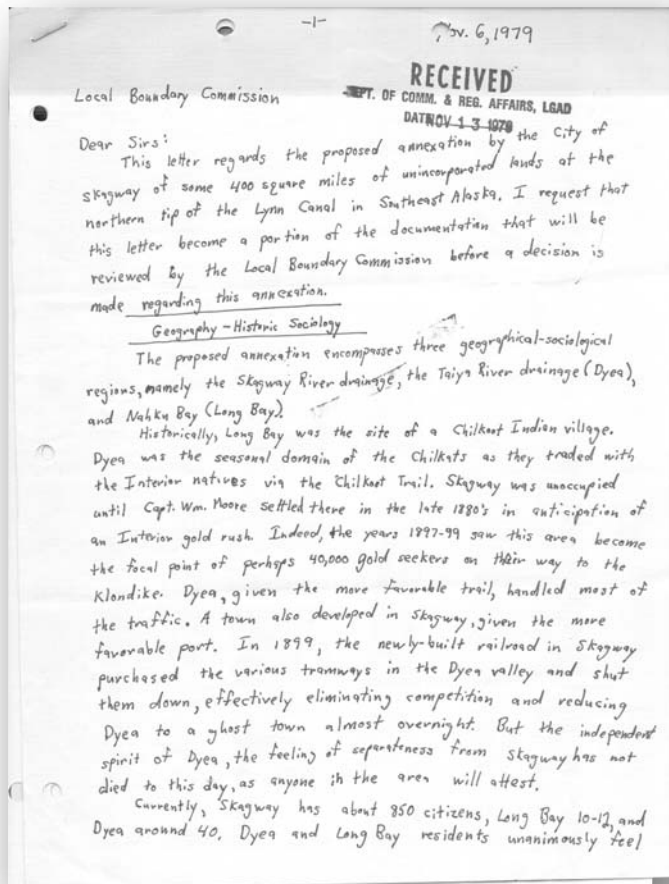 -1-
Nov. 6, 1979
RECEIVED
DEPT. OF COMM. & REG. AFFAIRS, LGAD
DATE NOV 13 1979
Local Boundary Commission
Dear Sirs:
This letter regards the proposed annexation by the City of
Skagway of some 400 square miles of unincorporated lands at the
northern tip of the Lynn Canal in Southeast Alaska. I request that
this letter become a portion of the documentation that will be
reviewed by the Local Boundary Commission before a decision is
made regarding this annexation.
Geography - Historic Sociology
The proposed annexation encompasses three geographical-sociological
regions, namely the Skagway River drainage, the Taiya River drainage (Dyea),
and Nahku Bay (Long Bay).
Historically, Long Bay was the site of a Chilkoot Indian village.
Dyea was the seasonal domain of the Chilkats as they traded with
the Interior natives via the Chilkoot Trail. Skagway was unoccupied
until Capt. Wm. Moore settled there in the late 1880's in anticipation of
an Interior gold rush. Indeed, the years 1897-99 saw this area become
the focal point of perhaps 40,000 gold seekers on their way to the
Klondike. Dyea, given the more favorable trail, handled most of
the traffic. A town also developed in Skagway, given the more
favorable port. In 1899, the newly-built railroad in Skagway
purchased the various tramways in the Dyea valley and shut
them down, effectively eliminating competition and reducing
Dyea to a ghost town almost overnight. But the independent
spirit of Dyea, the feeling of separateness from Skagway has not
died to this day, as anyone in the area will attest.
Currently, Skagway has about 850 citizens, Long Bay 10-12, and
Dyea around 40. Dyea and Long Bay residents unanimously feel